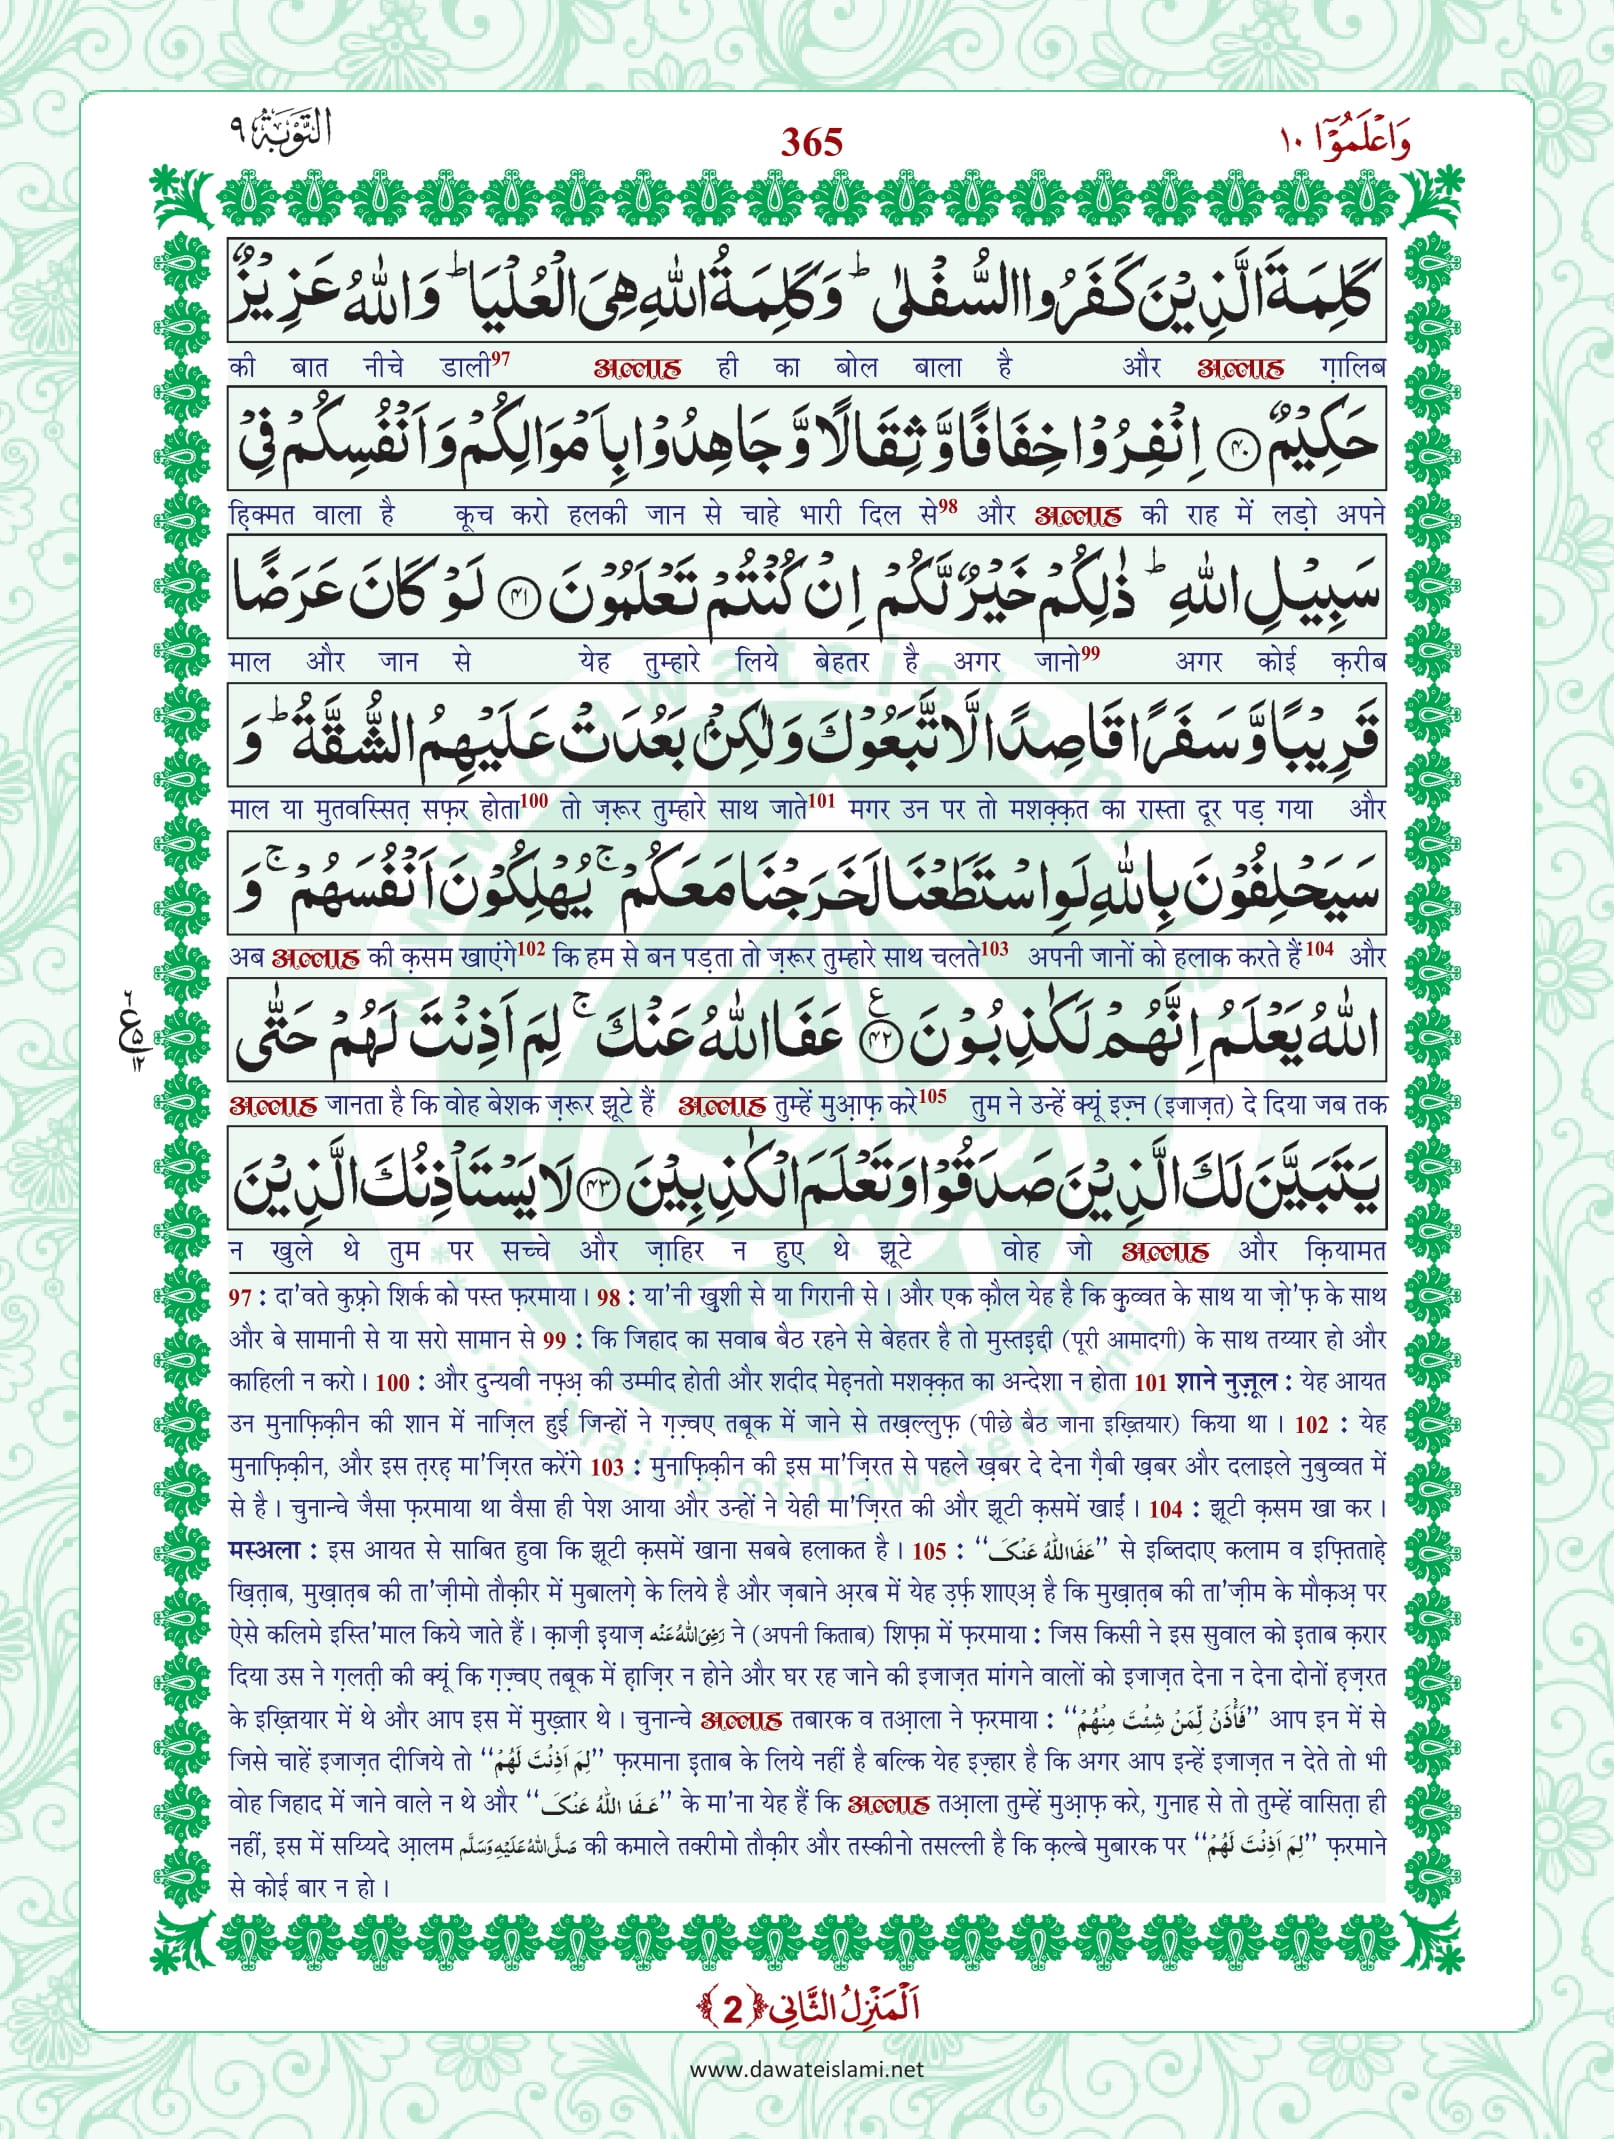 التوبة ٩
365
وَاعْلَمُوْۤا ١٠
كَلِمَةَ الَّذِیْنَ كَفَرُوا السُّفْلٰىؕ وَ كَلِمَةُ اللّٰهِ هِیَ الْعُلْیَاؕ وَ اللّٰهُ عَزِیْزٌ
की बात नीचे डाली97 अल्लाह ही का बोल बाला है और अल्लाह ग़ालिब
حَكِیْمٌ ﴿۴۰﴾ اِنْفِرُوْا خِفَافًا وَّ ثِقَالًا وَّ جَاهِدُوْا بِاَمْوَالِكُمْ وَ اَنْفُسِكُمْ فِیْ
हि़क्मत वाला है कूच करो हलकी जान से चाहे भारी दिल से98 और अल्लाह की राह में लड़ो अपने
سَبِیْلِ اللّٰهِؕ ذٰلِكُمْ خَیْرٌ لَّكُمْ اِنْ كُنْتُمْ تَعْلَمُوْنَ ﴿۴۱﴾ لَوْ كَانَ عَرَضًا
माल और जान से येह तुम्हारे लिये बेहतर है अगर जानो99 अगर कोई क़रीब
قَرِیْبًا وَّ سَفَرًا قَاصِدًا لَّاتَّبَعُوْكَ وَ لٰكِنْۢ بَعُدَتْ عَلَیْهِمُ الشُّقَّةُؕ وَ
माल या मुतवस्सित़ सफ़र होता100 तो ज़रूर तुम्हारे साथ जाते101 मगर उन पर तो मशक़्क़त का रास्ता दूर पड़ गया और
سَیَحْلِفُوْنَ بِاللّٰهِ لَوِ اسْتَطَعْنَا لَخَرَجْنَا مَعَكُمْۚ یُهْلِكُوْنَ اَنْفُسَهُمْۚ وَ
अब अल्लाह की क़सम खाएंगे102 कि हम से बन पड़ता तो ज़रूर तुम्हारे साथ चलते103 अपनी जानों को हलाक करते हैं104 और
اللّٰهُ یَعْلَمُ اِنَّهُمْ لَكٰذِبُوْنَ ﴿۴۲﴾ عَفَا اللّٰهُ عَنْكَۚ لِمَ اَذِنْتَ لَهُمْ حَتّٰى
अल्लाह जानता है कि वोह बेशक ज़रूर झूटे हैं अल्लाह तुम्हें मुआ़फ़ करे105 तुम ने उन्हें क्यूं इज़्न (इजाज़त) दे दिया जब तक
یَتَبَیَّنَ لَكَ الَّذِیْنَ صَدَقُوْا وَ تَعْلَمَ الْكٰذِبِیْنَ ﴿۴۳﴾ لَا یَسْتَاْذِنُكَ الَّذِیْنَ
न खुले थे तुम पर सच्चे और ज़ाहिर न हुए थे झूटे वोह जो अल्लाह और क़ियामत
97 : दा'वते कुफ़्रो शिर्क को पस्त फ़रमाया। 98 : या'नी ख़ुशी से या गिरानी से। और एक क़ौल येह है कि क़ुव्वत के साथ या ज़ो'फ़ के साथ
और बे सामानी से या सरो सामान से 99 : कि जिहाद का सवाब बैठ रहने से बेहतर है तो मुस्तइ़द्दी (पूरी आमादगी) के साथ तय्यार हो और
काहिली न करो। 100 : और दुन्यवी नफ़्अ़ की उम्मीद होती और शदीद मेह़नतो मशक़्क़त का अन्देशा न होता 101 शाने नुज़ूल : येह आयत
उन मुनाफ़िक़ीन की शान में नाज़िल हुई जिन्हों ने ग़ज़्वए तबूक में जाने से तख़ल्लुफ़ (पीछे बैठ जाना इख़्तियार) किया था। 102 : येह
मुनाफ़िक़ीन, और इस त़रह़ मा'ज़िरत करेंगे 103 : मुनाफ़िक़ीन की इस मा'ज़िरत से पहले ख़बर दे देना ग़ैबी ख़बर और दलाइले नुबुव्वत में
से है। चुनान्चे जैसा फ़रमाया था वैसा ही पेश आया और उन्हों ने येही मा'ज़िरत की और झूटी क़समें खाईं। 104 : झूटी क़सम खा कर।
मस्अला : इस आयत से साबित हुवा कि झूटी क़समें खाना सबबे हलाकत है। 105 : “عَفَا اللّٰهُ عَنْکَ” से इब्तिदाए कलाम व इफ़्तिताह़े
ख़ित़ाब, मुख़ात़ब की ता'ज़ीमो तौक़ीर में मुबालगे के लिये है और ज़बाने अ़रब में येह उ़र्फ़ शाएअ़ है कि मुख़ात़ब की ता'ज़ीम के मौक़अ़ पर
ऐसे कलिमे इस्ति'माल किये जाते हैं। क़ाज़ी इ़याज़ رَضِیَ اللّٰهُ عَنْه ने (अपनी किताब) शिफ़ा में फ़रमाया : जिस किसी ने इस सुवाल को इ़ताब क़रार
दिया उस ने ग़लत़ी की क्यूं कि ग़ज़्वए तबूक में ह़ाज़िर न होने और घर रह जाने की इजाज़त मांगने वालों को इजाज़त देना न देना दोनों ह़ज़रत
के इख़्तियार में थे और आप इस में मुख़्तार थे। चुनान्चे अल्लाह तबारक व तआ़ला ने फ़रमाया : “فَأْذَنْ لِّمَنْ شِئْتَ مِنْهُمْ” आप इन में से
जिसे चाहें इजाज़त दीजिये तो “لِمَ اَذِنْتَ لَهُمْ” फ़रमाना इ़ताब के लिये नहीं है बल्कि येह इज़्हार है कि अगर आप इन्हें इजाज़त न देते तो भी
वोह जिहाद में जाने वाले न थे और “عَفَا اللّٰهُ عَنْکَ” के मा'ना येह हैं कि अल्लाह तआ़ला तुम्हें मुआ़फ़ करे, गुनाह से तो तुम्हें वासित़ा ही
नहीं, इस में सय्यिदे आ़लम صَلَّی اللّٰهُ عَلَیْهِ وَسَلَّم की कमाले तक्रीमो तौक़ीर और तस्कीनो तसल्ली है कि क़ल्बे मुबारक पर “لِمَ اَذِنْتَ لَهُمْ” फ़रमाने
से कोई बार न हो।
اَلْمَنْزِلُ الثَّانِی ﴿2﴾
www.dawateislami.net